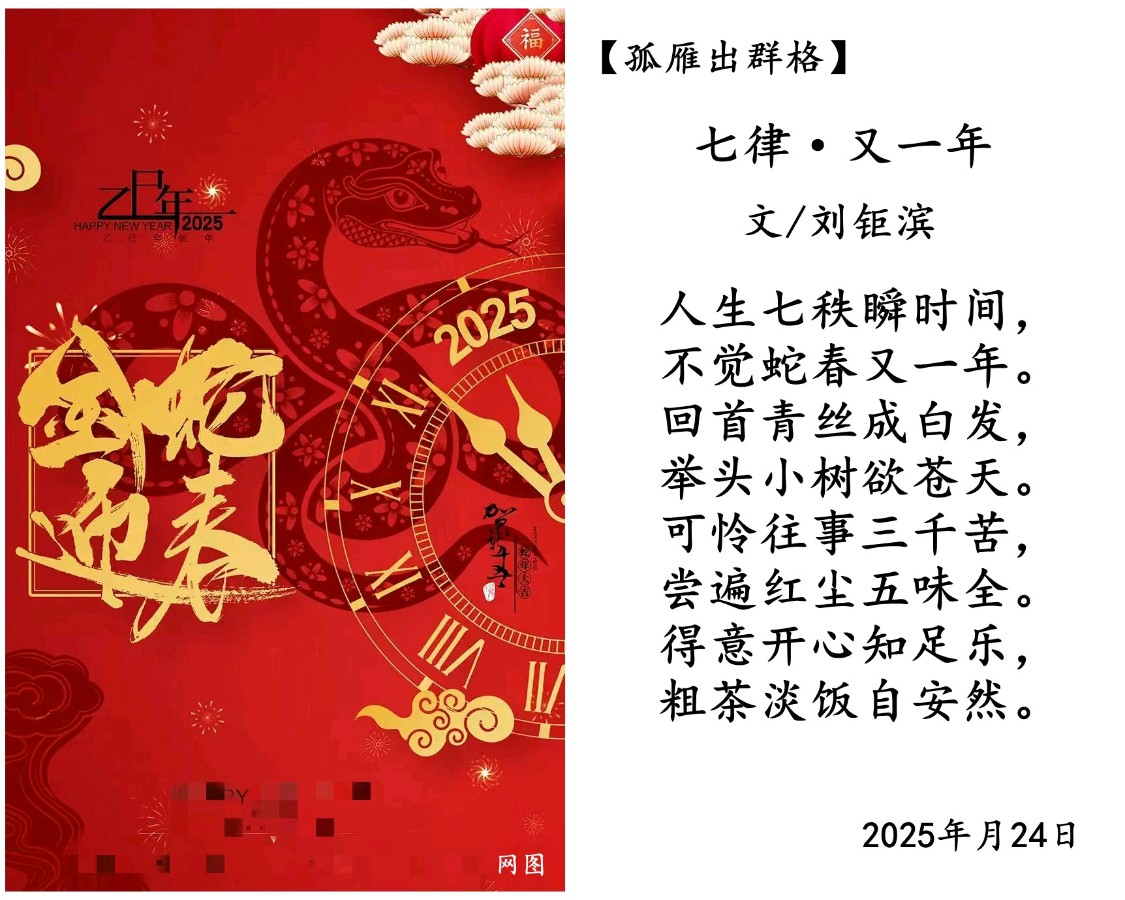 福
乙巳年
HAPPY NEW YEAR 2025
2025
金蛇
迎春
蛇年大吉
网图
【孤雁出群格】
七律·又一年
文/刘钜滨
人生七秩瞬时间，
不觉蛇春又一年。
回首青丝成白发，
举头小树欲苍天。
可怜往事三千苦，
尝遍红尘五味全。
得意开心知足乐，
粗茶淡饭自安然。
2025年月24日